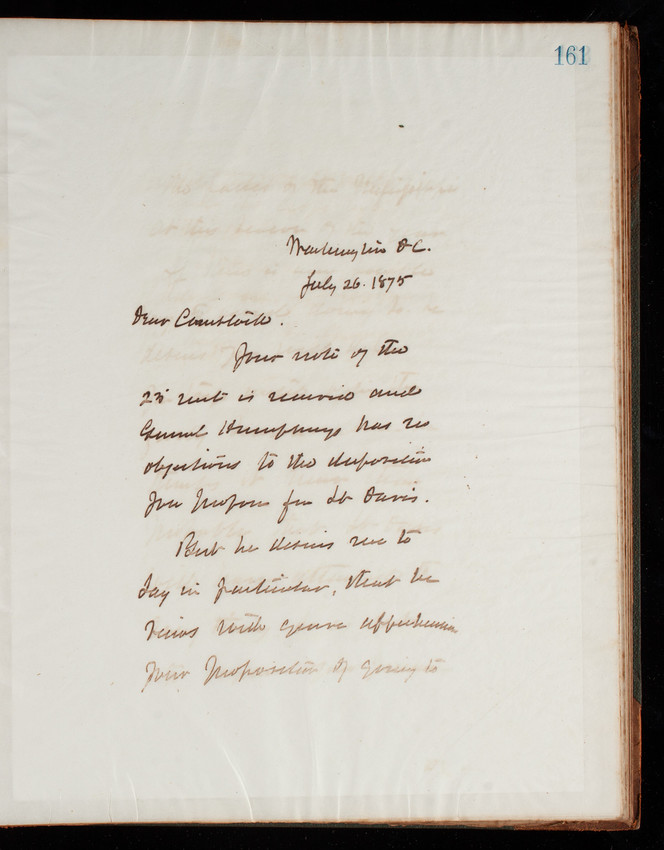 161
Washington D.C.
July 26. 1875
Dear Comstock.
Your note of the
23 inst is received and
General Humphreys has no
objections to the disposition
you propose for Lt Davis.
But he desires me to
say in particular, that he
views with grave apprehension
your proposition of going to